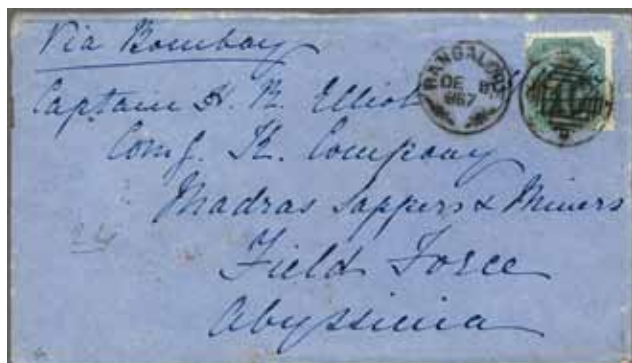 Via Bombay
BANGALORE
DE 8
867
Captain H. R. Elliot
Comg. K. Company
Madras Sappers & Miners
24
Field Force
Abyssinia